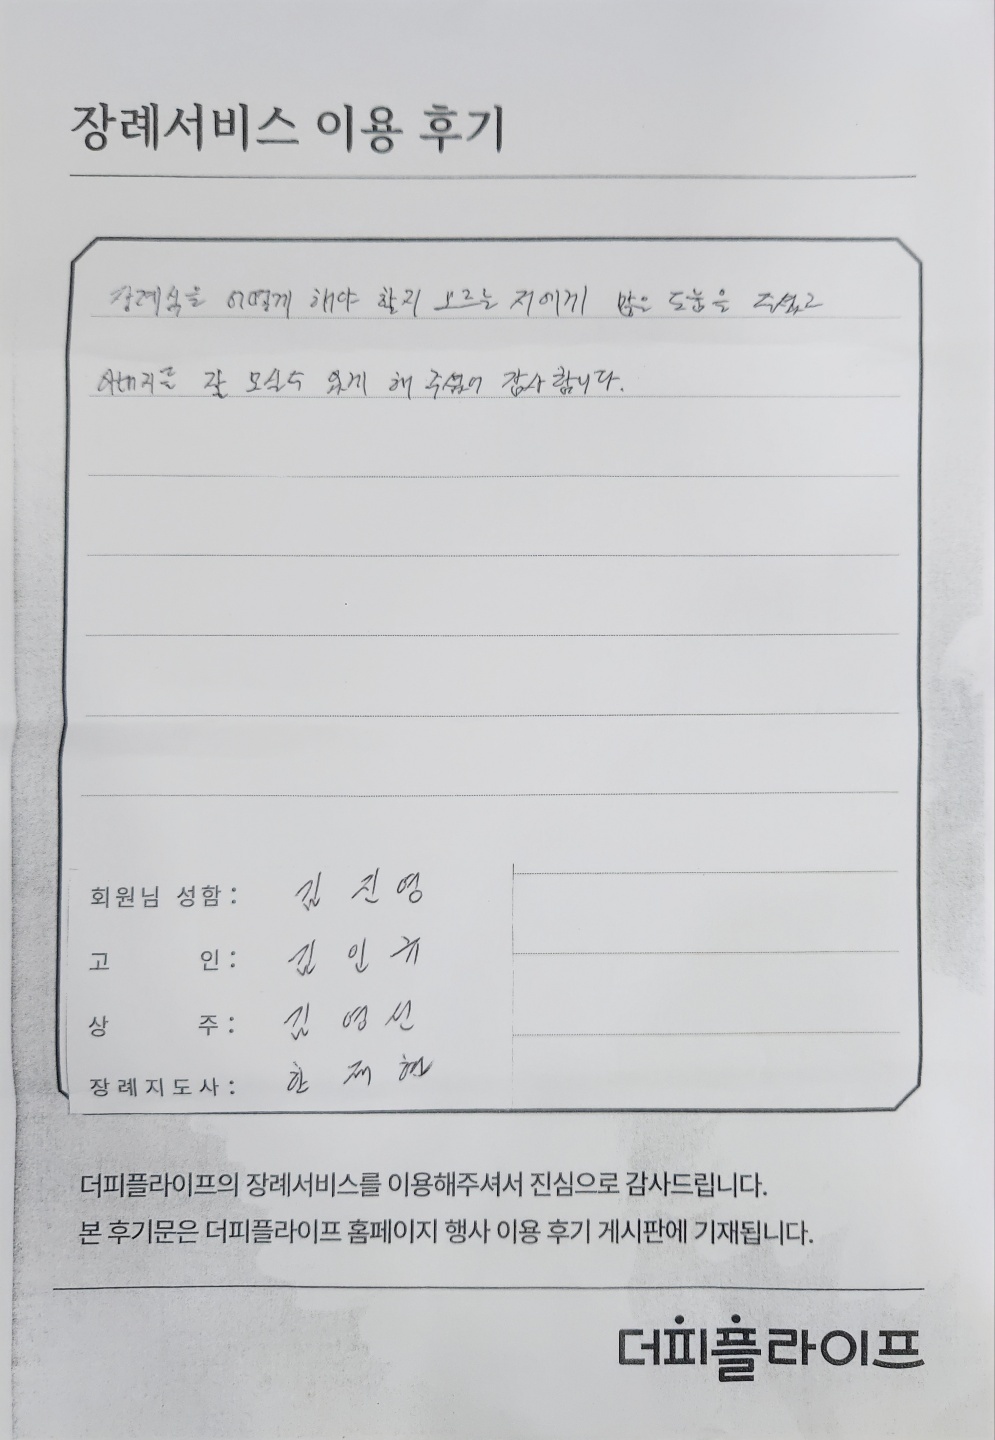 장례서비스 이용 후기
장례식을 어떻게 해야 할지 모르는 저에게 많은 도움을 주셨고
아버지를 잘 모실수 있게 해 주셨어 감사합니다.
회원님 성함 : 김진영
고 인 : 김인규
상 주 : 김영선
장례지도사 : 한재현
더피플라이프의 장례서비스를 이용해주셔서 진심으로 감사드립니다.
본 후기문은 더피플라이프 홈페이지 행사 이용 후기 게시판에 기재됩니다.
더피플라이프